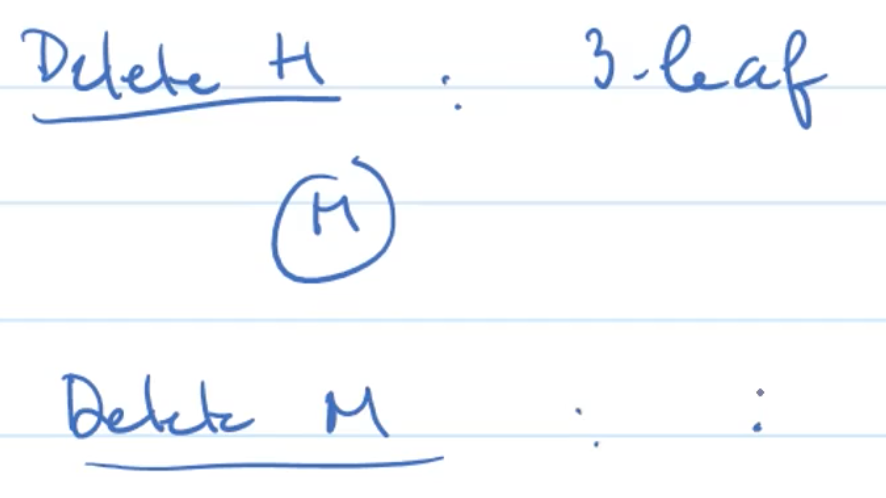 Delete H : 3-leaf
M
Delete M :